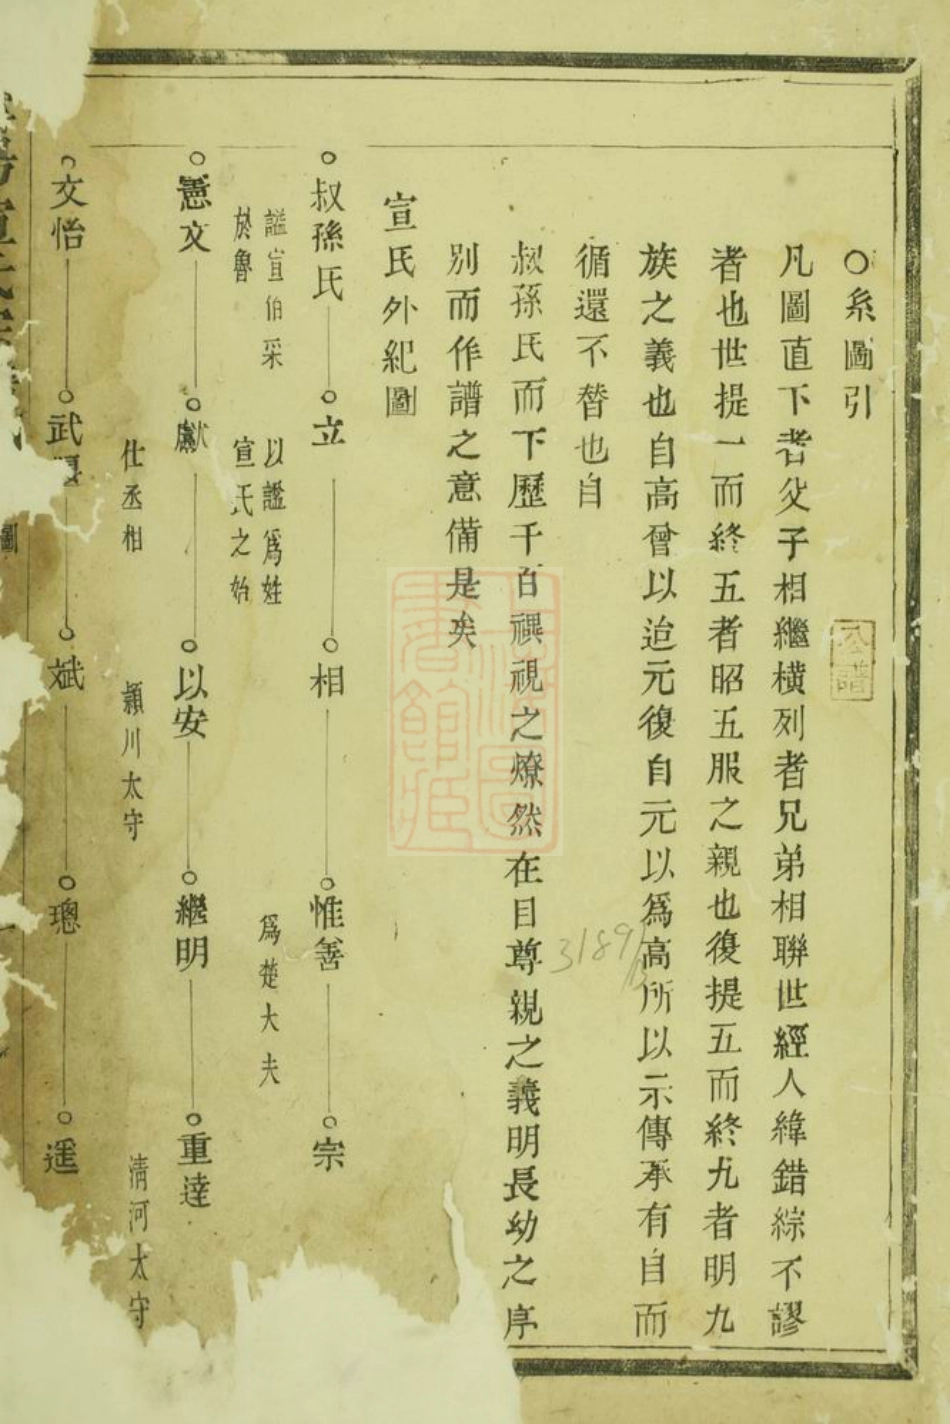 ○系圖引
公譜
凡圖直下者父子相繼橫列者兄弟相聯世經人緯錯綜不謬
者也世提一而終五者昭五服之親也復提五而終九者明九
族之義也自高曾以迨元復自元以爲高所以示傳承有自而
循還不替也自
叔孫氏而下歷千百禩視之燎然在目尊親之義明長幼之序
別而作譜之意備是矣
31891
宣氏外紀圖
○叔孫氏 ○立 ○相 ○惟善 ○宗
謚宣伯采 以謚爲姓 爲楚大夫
於魯 宣氏之始
○憲文 ○獻 ○以安 ○繼明 ○重達
仕丞相 潁川太守 清河太守
○文怡 ○武 ○斌 ○璁 ○遥
宣氏
圖